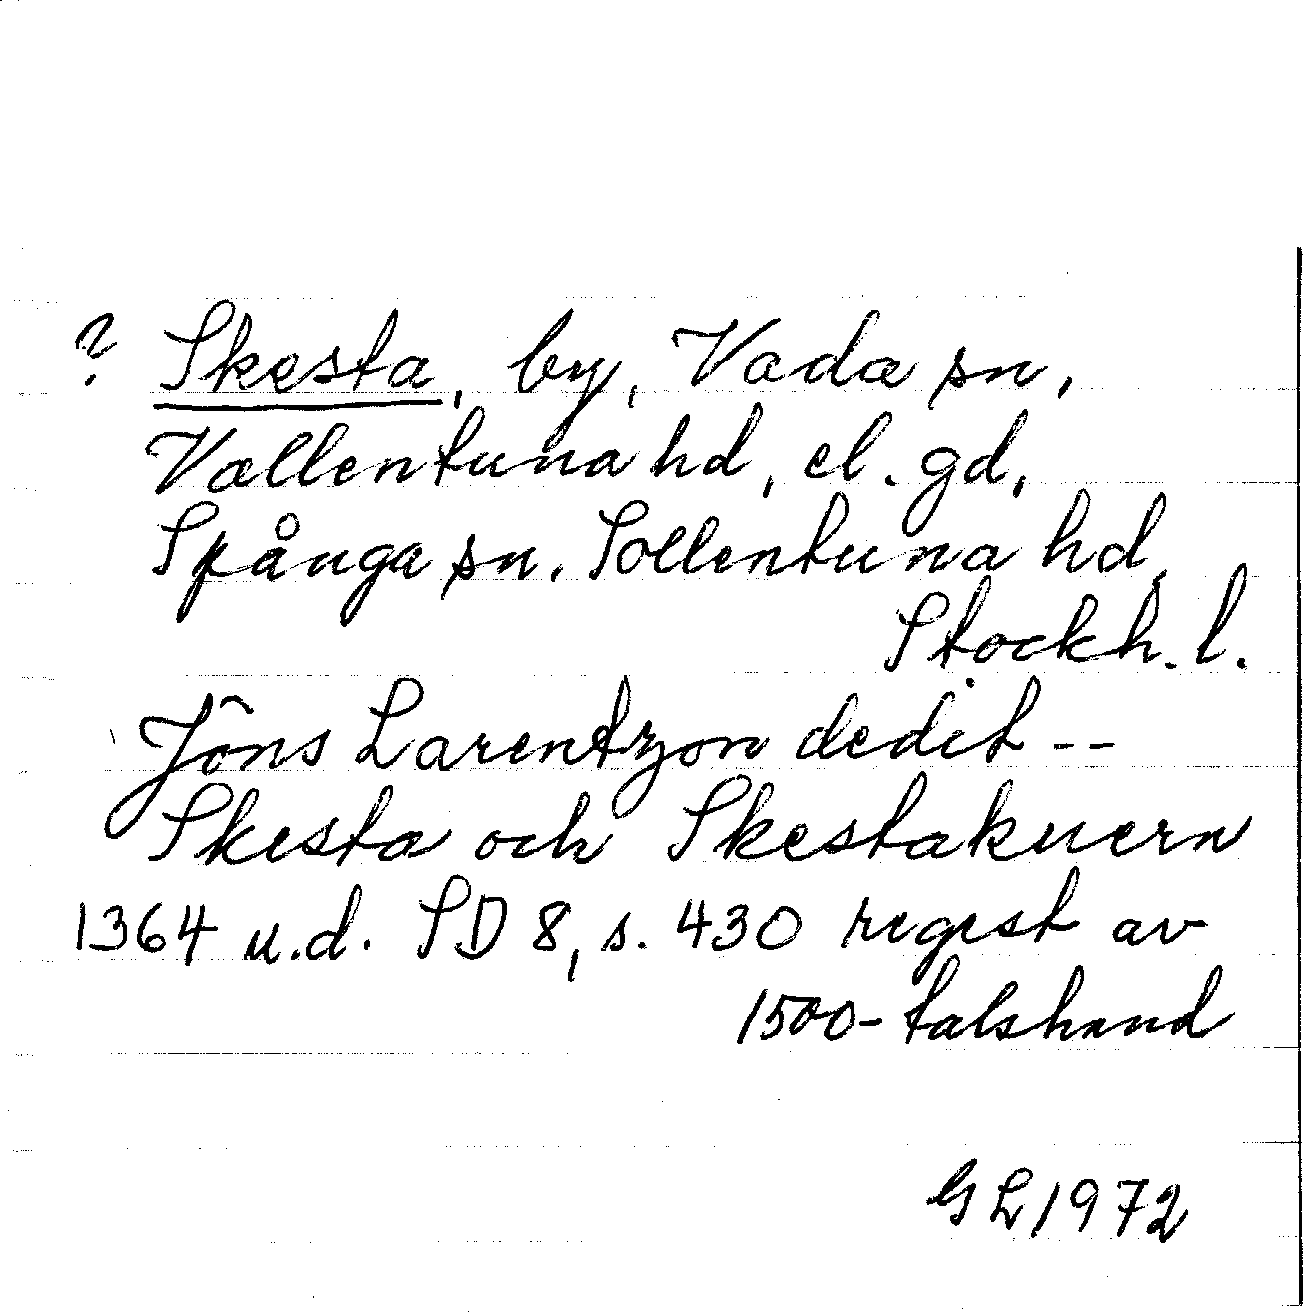 ? Skesta, by, Vada sn,
Vallentuna hd, el. gd,
Spånga sn. Sollentuna hd,
Stockh. l.
Jöns Larentzon dedit --
Skesta och Skestakuern
1364 u.d. SD 8, s. 430 regest av
1500-talshand
GL 1972